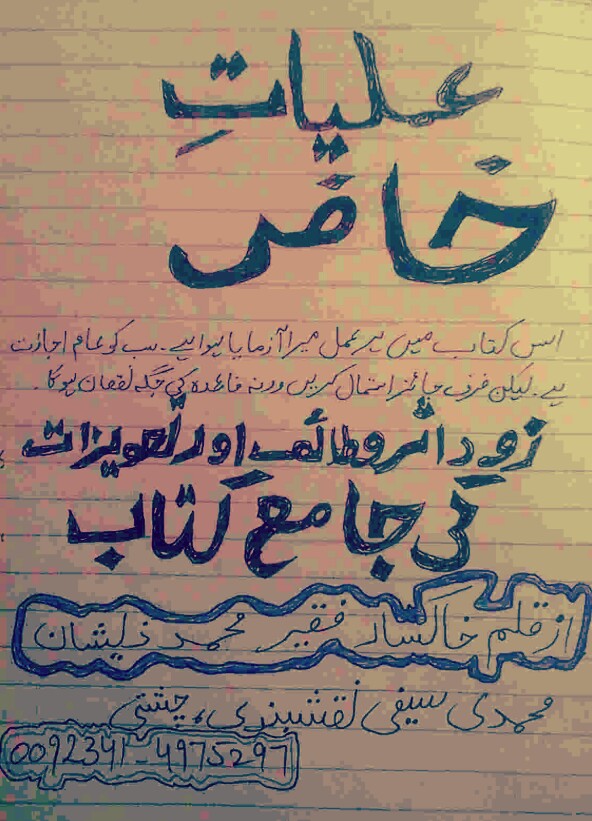 عملیاتِ
خاص
اس کتاب میں ہر عمل میرا آزمایا ہوا ہے۔ سب کو عام اجازت
ہے۔ لیکن صرف جائز استعمال کریں ورنہ فائدہ کی جگہ نقصان ہوگا۔
زود اثر وظائف اور تعویزات
کی جامع کتاب
از قلم خاکسار فقیر محمد ذیشان
محمدی سیفی نقشبندی، چشتی
0092341-4975297